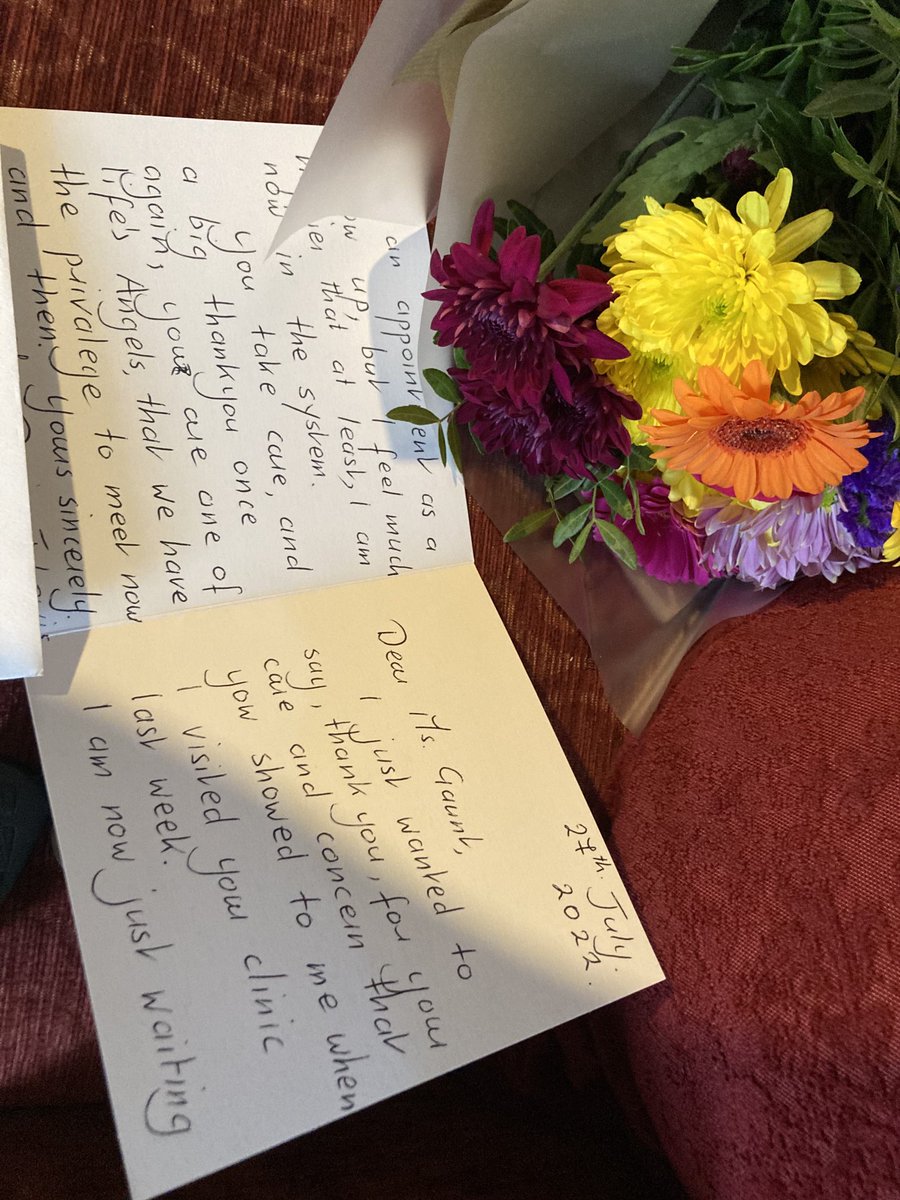 27th. July.
2022.
Dear Ms. Gaunt,
I just wanted to
say, thank you, for your
care and concern that
you showed to me when
I visited your clinic
last week.
I am now just waiting
an appointment as a
up, but I feel much
that at least, I am
now in the system.
You take care, and
a big thankyou once
again, you are one of
life's Angels, that we have
the privalege to meet now
and then. Yours sincerely.